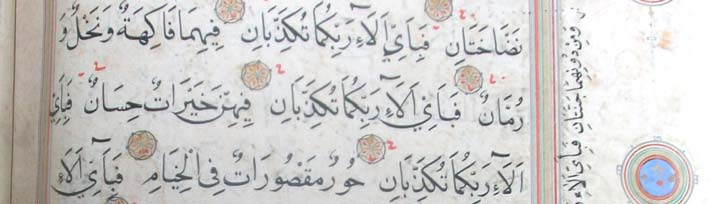 نَضَّاخَتَانِ فَبِاَيِّ اٰلَاۤءِ رَبِّكُمَا تُكَذِّبَانِ فِيهِمَا فَاكِهَةٌ وَنَخْلٌ وَ
رُمَّانٌ فَبِاَيِّ اٰلَاۤءِ رَبِّكُمَا تُكَذِّبَانِ فِيهِنَّ خَيْرَاتٌ حِسَانٌ فَبِاَيِّ
اٰلَاۤءِ رَبِّكُمَا تُكَذِّبَانِ حُورٌ مَقْصُورَاتٌ فِي الْخِيَامِ فَبِاَيِّ اٰلَاۤءِ
وَمِنْ دُونِهِمَا جَنَّتَانِ فَبِاَيِّ اٰلَاۤءِ